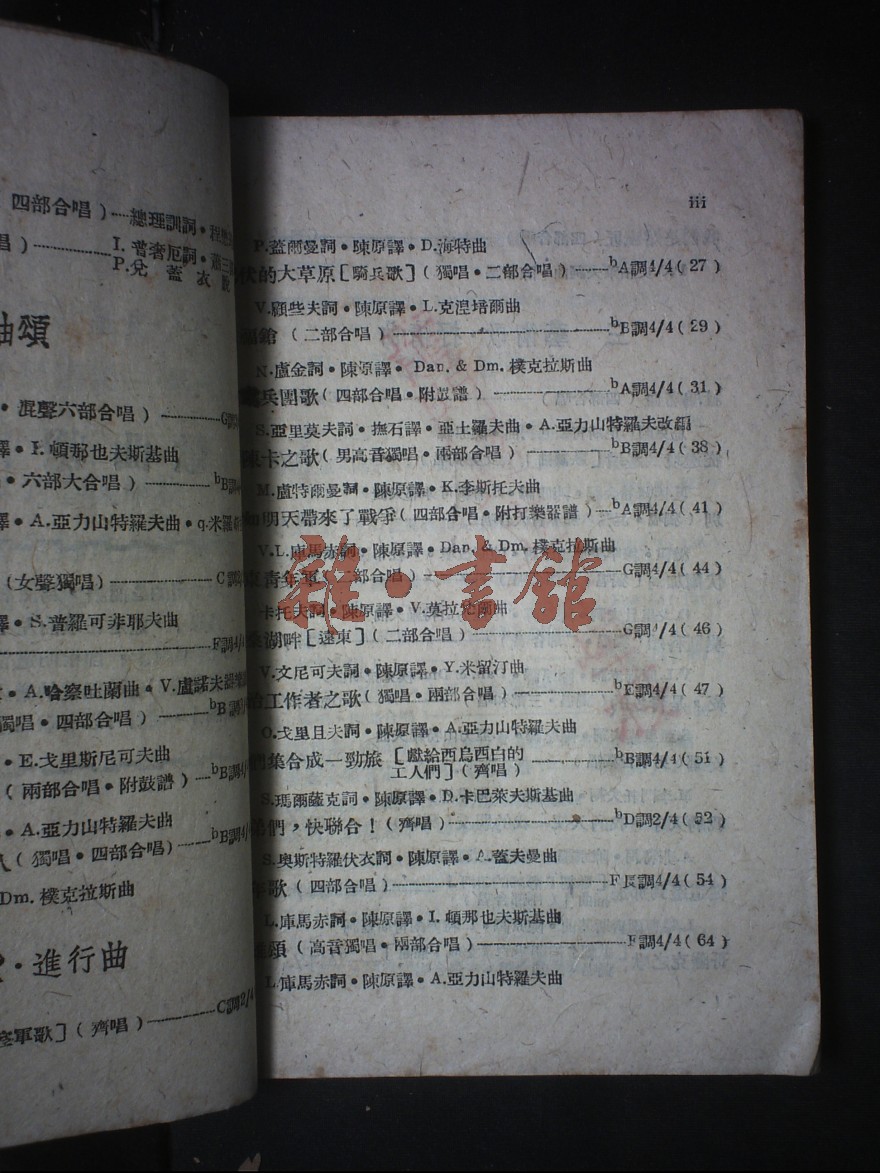 四部合唱)····總理訓詞·程
唱)
I. 昔奢厄詞·蕭三
P.兌藍衣
曲頌
·混聲六部合唱)————G調
譯·I.頓那也夫斯基曲
·六部大合唱)————bB調
譯·A.亞力山特羅夫曲·q.米羅
(女聲獨唱)————C調
譯·S.普羅可非耶夫曲
————F調4/4
·A.哈察吐蘭曲·V.盧諾夫
獨唱·四部合唱)————bB調
·E.戈里斯尼可夫曲
(兩部合唱·附鼓譜)————bB調4/
·A.亞力山特羅夫曲
人(獨唱·四部合唱)————bB調4/
Dm. 樸克拉斯曲
·進行曲
軍歌](齊唱)————C調2/4
iii
P.蓋爾曼詞·陳原譯·D.海特曲
伏的大草原[騎兵歌](獨唱·二部合唱)————bA調4/4(27)
V.顧些夫詞·陳原譯·L.克湼培爾曲
鎗(二部合唱)————bB調4/4(29)
N.盧金詞·陳原譯·Dan. & Dm. 樸克拉斯曲
兵團歌(四部合唱·附鼓譜)————bA調4/4(31)
S.亞里莫夫詞·撫石譯·亞土羅夫曲·A.亞力山特羅夫改編
卡之歌(男高音獨唱·兩部合唱)————bB調4/4(38)
M.盧特爾曼詞·陳原譯·K.李斯托夫曲
明天帶來了戰爭(四部合唱·附打樂器譜)————bA調4/4(41)
V.L.庫馬赤詞·陳原譯·Dan. & Dm. 樸克拉斯曲
青年軍(二部合唱)————G調4/4(44)
卡托夫詞·陳原譯·V.莫拉梵蘭曲
湖畔[遠東](二部合唱)————G調4/4(46)
V.文尼可夫詞·陳原譯·Y.米留汀曲
工作者之歌(獨唱·兩部合唱)————bE調4/4(47)
O.戈里且夫詞·陳原譯·A.亞力山特羅夫曲
們集合成一勁旅[獻給西烏西白的工人們](齊唱)————bB調4/4(51)
S.瑪爾薩克詞·陳原譯·D.卡巴萊夫斯基曲
弟們,快聯合!(齊唱)————bD調2/4(52)
S.奧斯特羅伏衣詞·陳原譯·A.蓋夫曼曲
歌(四部合唱)————F長調4/4(54)
L.庫馬赤詞·陳原譯·I.頓那也夫斯基曲
頌(高音獨唱·兩部合唱)————F調4/4(64)
L.庫馬赤詞·陳原譯·A.亞力山特羅夫曲
雜·書館